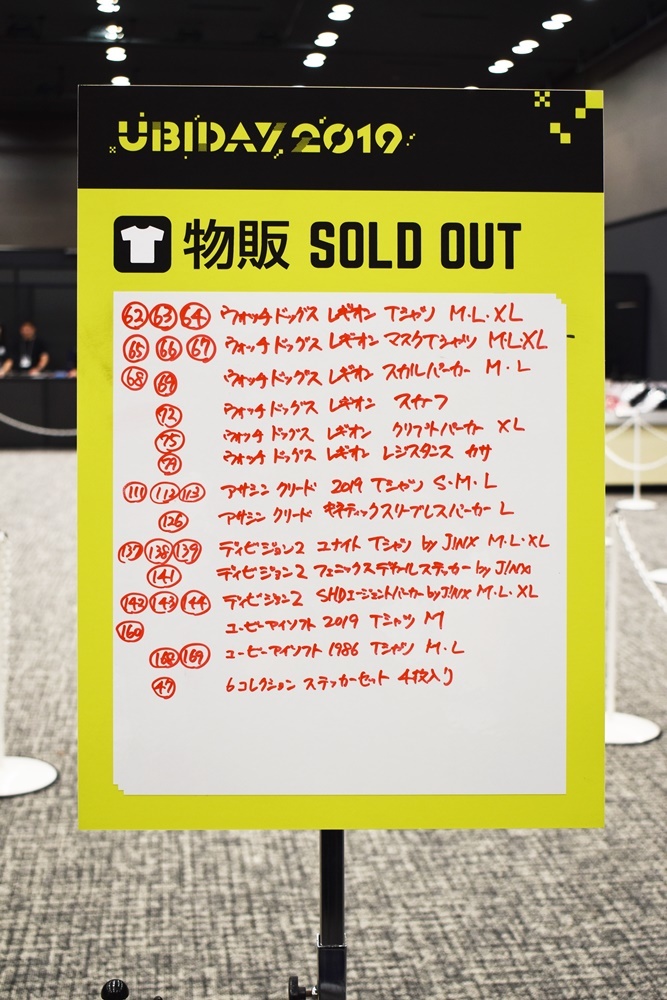 UBIDAY 2019
物販 SOLD OUT
62 63 64 ウォッチドッグス レギオン Tシャツ M・L・XL
65 66 67 ウォッチドッグス レギオン マスクTシャツ M・L・XL
68 69 ウォッチドッグス レギオン スカルパーカー M・L
72 ウォッチドッグス レギオン スカーフ
75 ウォッチドッグス レギオン クリプトパーカー XL
79 ウォッチドッグス レギオン レジスタンス カサ
111 112 113 アサシン クリード 2019 Tシャツ S・M・L
126 アサシン クリード キネティックスリーブレスパーカー L
137 138 139 ディビジョン2 ユナイト Tシャツ by JINX M・L・XL
141 ディビジョン2 フェニックスデカールステッカー by JINX
142 143 144 ディビジョン2 SHDエージェントパーカー by JINX M・L・XL
160 ユービーアイソフト 2019 Tシャツ M
168 169 ユービーアイソフト 1986 Tシャツ M・L
47 6コレクション ステッカーセット 4枚入り